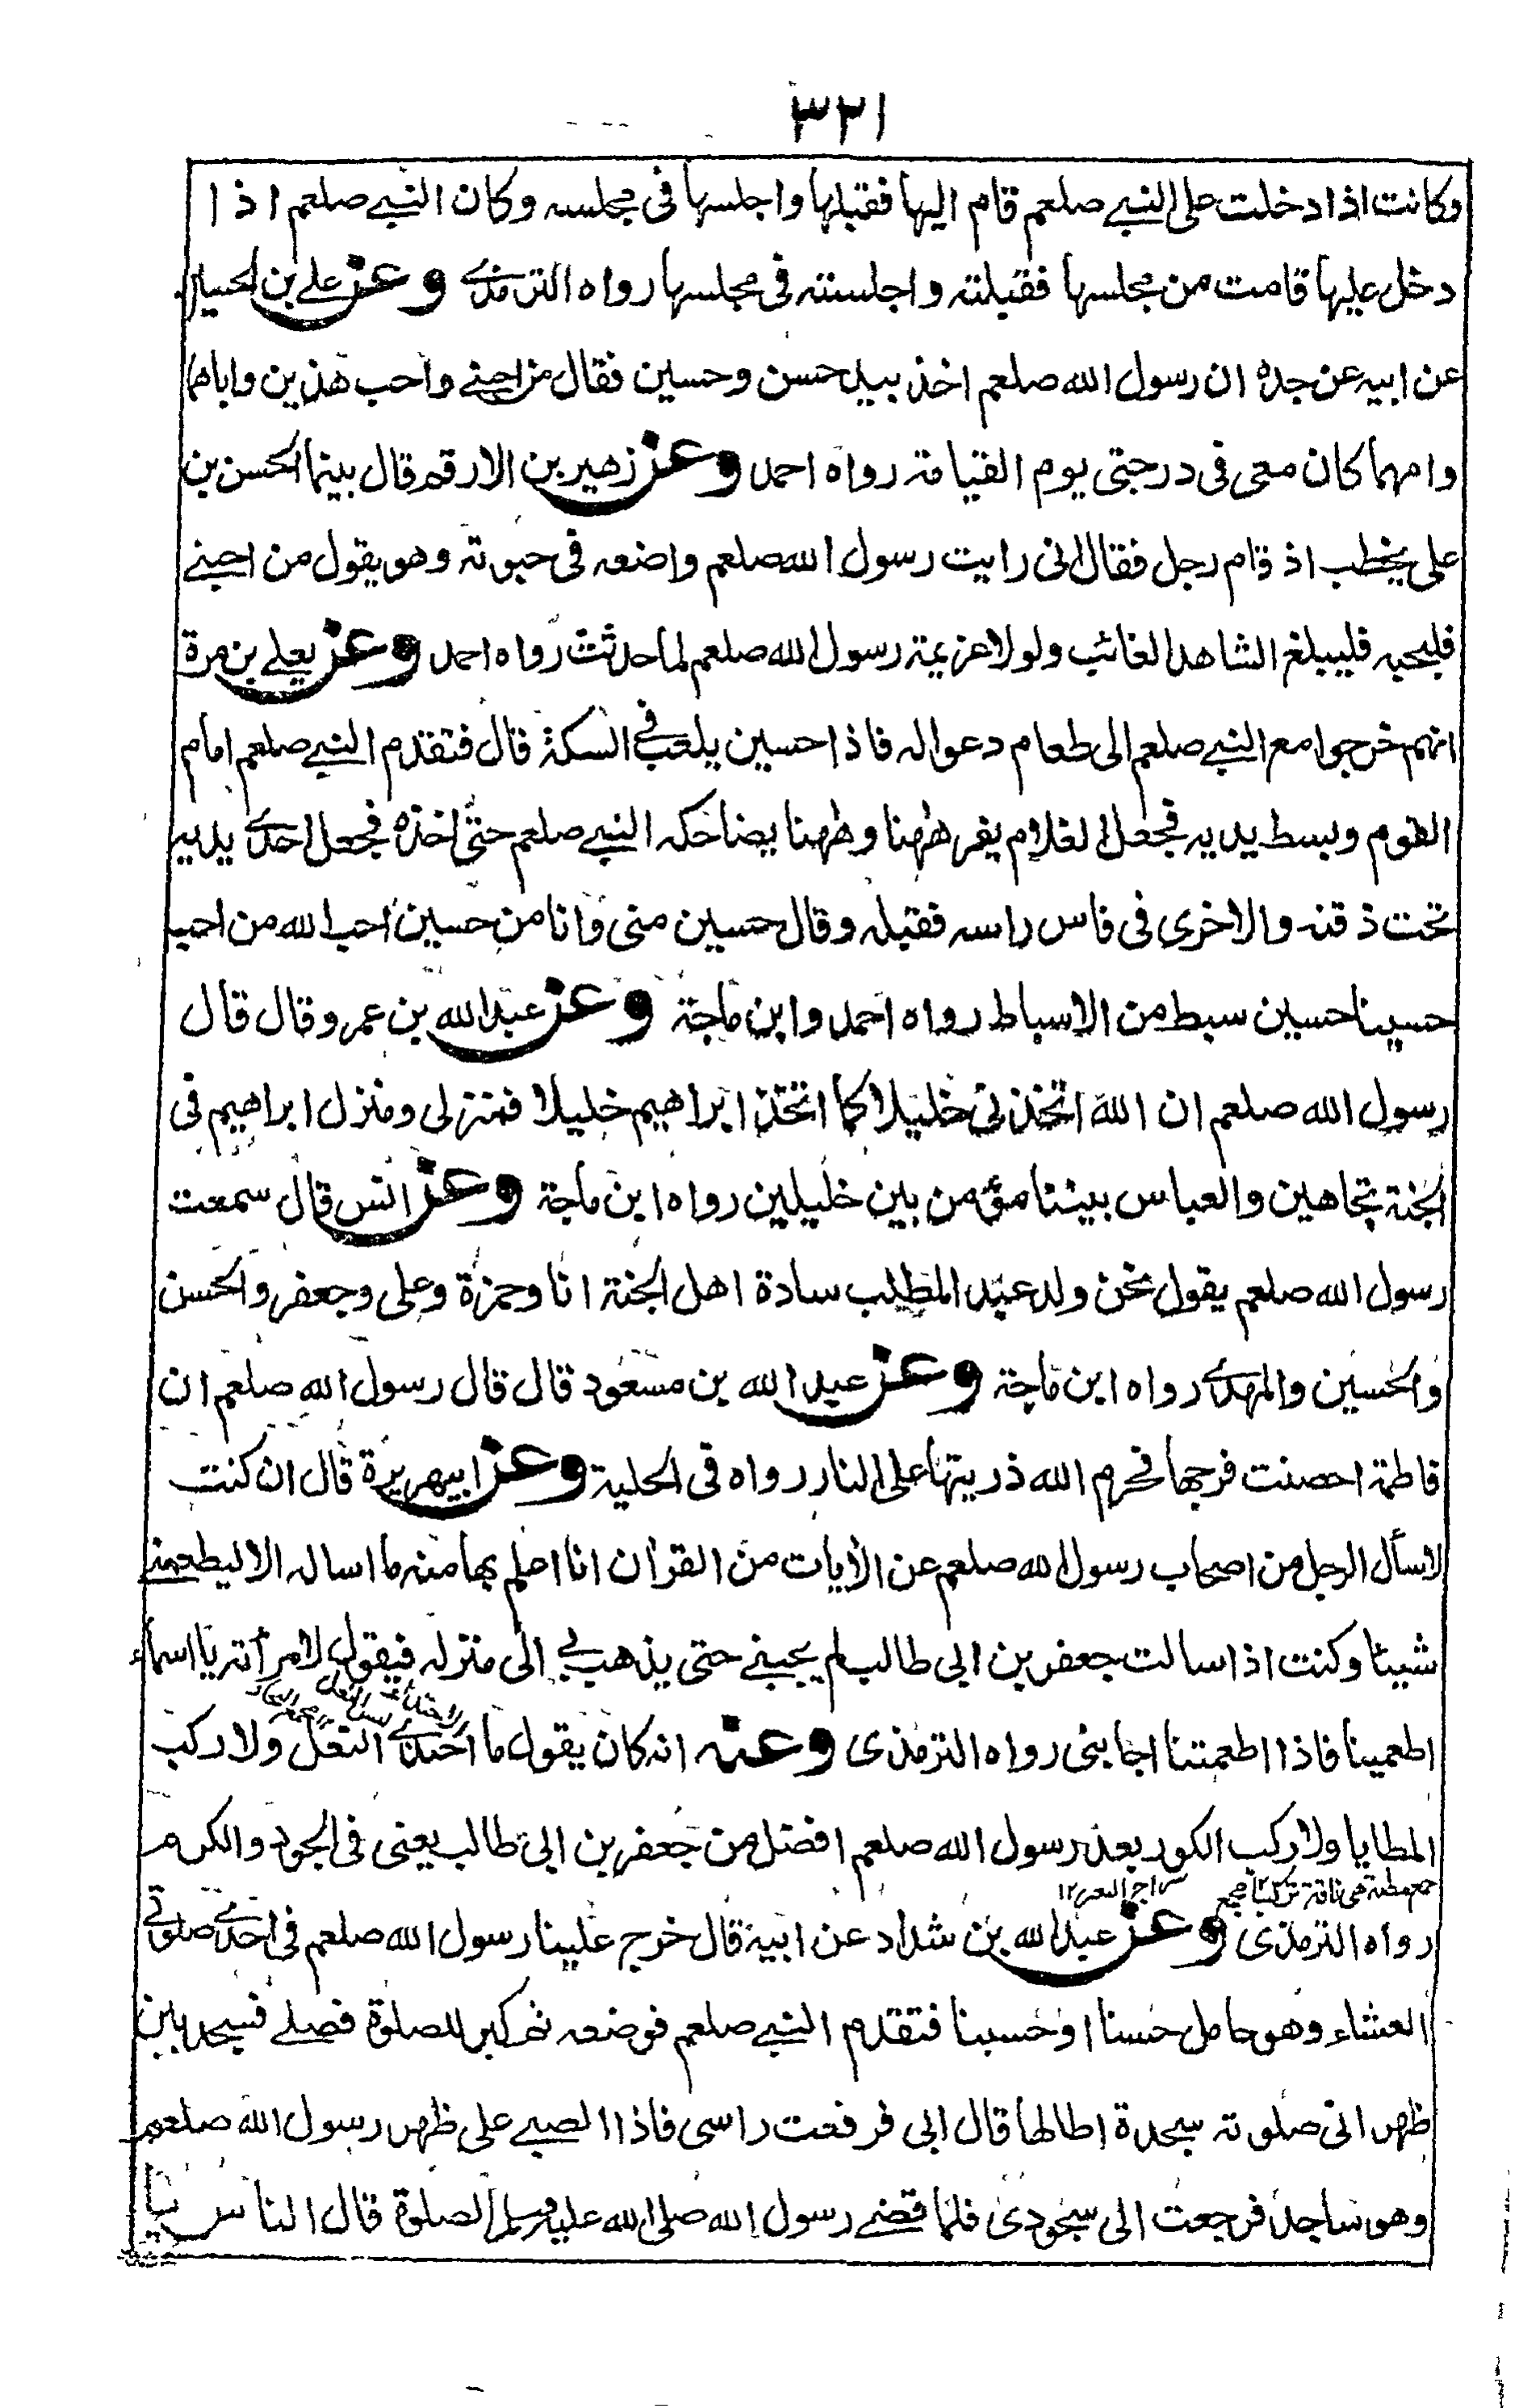 ٣٢١
وكانت اذا دخلت على النبے صلعم قام اليها فقبلها واجلسها فى مجلسه وكان النبے صلعم اذا
دخل عليها قامت من مجلسها فقبلته واجلسته فى مجلسها رواه الترمذے وعن علے بن الحسين
عن ابيه عن جده ان رسول الله صلعم اخذ بيد حسن وحسين فقال من احبنے واحب هذين واباهما
وامهما كان معى فى درجتى يوم القيامة رواه احمد وعن زهير بن الارقم قال بينما الحسن بن
على يخطب اذ قام رجل فقال انى رايت رسول الله صلعم واضعه فى حبوته وهو يقول من احبنے
فليحبه فليبلغ الشاهد الغائب ولولا عزيمة رسول الله صلعم لما حدثت رواه احمد وعن يعلے بن مرة
انهم خرجوا مع النبے صلعم الى طعام دعوا له فاذا حسين يلعب فے السكة قال فتقدم النبے صلعم امام
القوم وبسط يديه فجعل الغلام يفر ههنا وههنا يضاحكه النبے صلعم حتى اخذه فجعل احدے يديه
تحت ذقنه والاخرى فى فاس راسه فقبله وقال حسين منى وانا من حسين احب الله من احب
حسينا حسين سبط من الاسباط رواه احمد وابن ماجة وعن عبد الله بن عمرو قال قال
رسول الله صلعم ان الله اتخذنى خليلا كما اتخذ ابراهيم خليلا فمنزلى ومنزل ابراهيم فى
الجنة تجاهين والعباس بيننا مؤمن بين خليلين رواه ابن ماجة وعن انس قال سمعت
رسول الله صلعم يقول نحن ولد عبد المطلب سادة اهل الجنة انا وحمزة وعلى وجعفر والحسن
والحسين والمهدے رواه ابن ماجة وعن عبد الله بن مسعود قال قال رسول الله صلعم ان
فاطمة احصنت فرجها فحرم الله ذريتها على النار رواه فى الحلية وعن ابيهريرة قال ان كنت
لاسأل الرجل من اصحاب رسول الله صلعم عن الأيات من القرأن انا اعلم بها منه ما اساله الا ليطعمنے
شيئا وكنت اذا سالت جعفر بن ابى طالب لم يجبنے حتى يذهب بے الى منزله فيقول لامرأته يا اسماء
اطعمينا فاذا اطعمتنا اجابنى رواه الترمذى وعنه انه كان يقول ما احتذے النعل ولا ركب
المطايا ولا ركب الكور بعد رسول الله صلعم افضل من جعفر بن ابى طالب يعنى فى الجود والكرم
رواه الترمذى وعن عبد الله بن شداد عن ابيه قال خرج علينا رسول الله صلعم فى احدے صلوتے
العشاء وهو حامل حسنا او حسينا فتقدم النبے صلعم فوضعه ثم كبر للصلوة فصلے فسجد بين
ظهرانى صلوته سجدة اطالها قال ابى فرفعت راسى فاذا الصبے على ظهر رسول الله صلعم
وهو ساجد فرجعت الى سجودى فلما قضے رسول الله صلى الله عليه وسلم الصلوة قال الناس يا